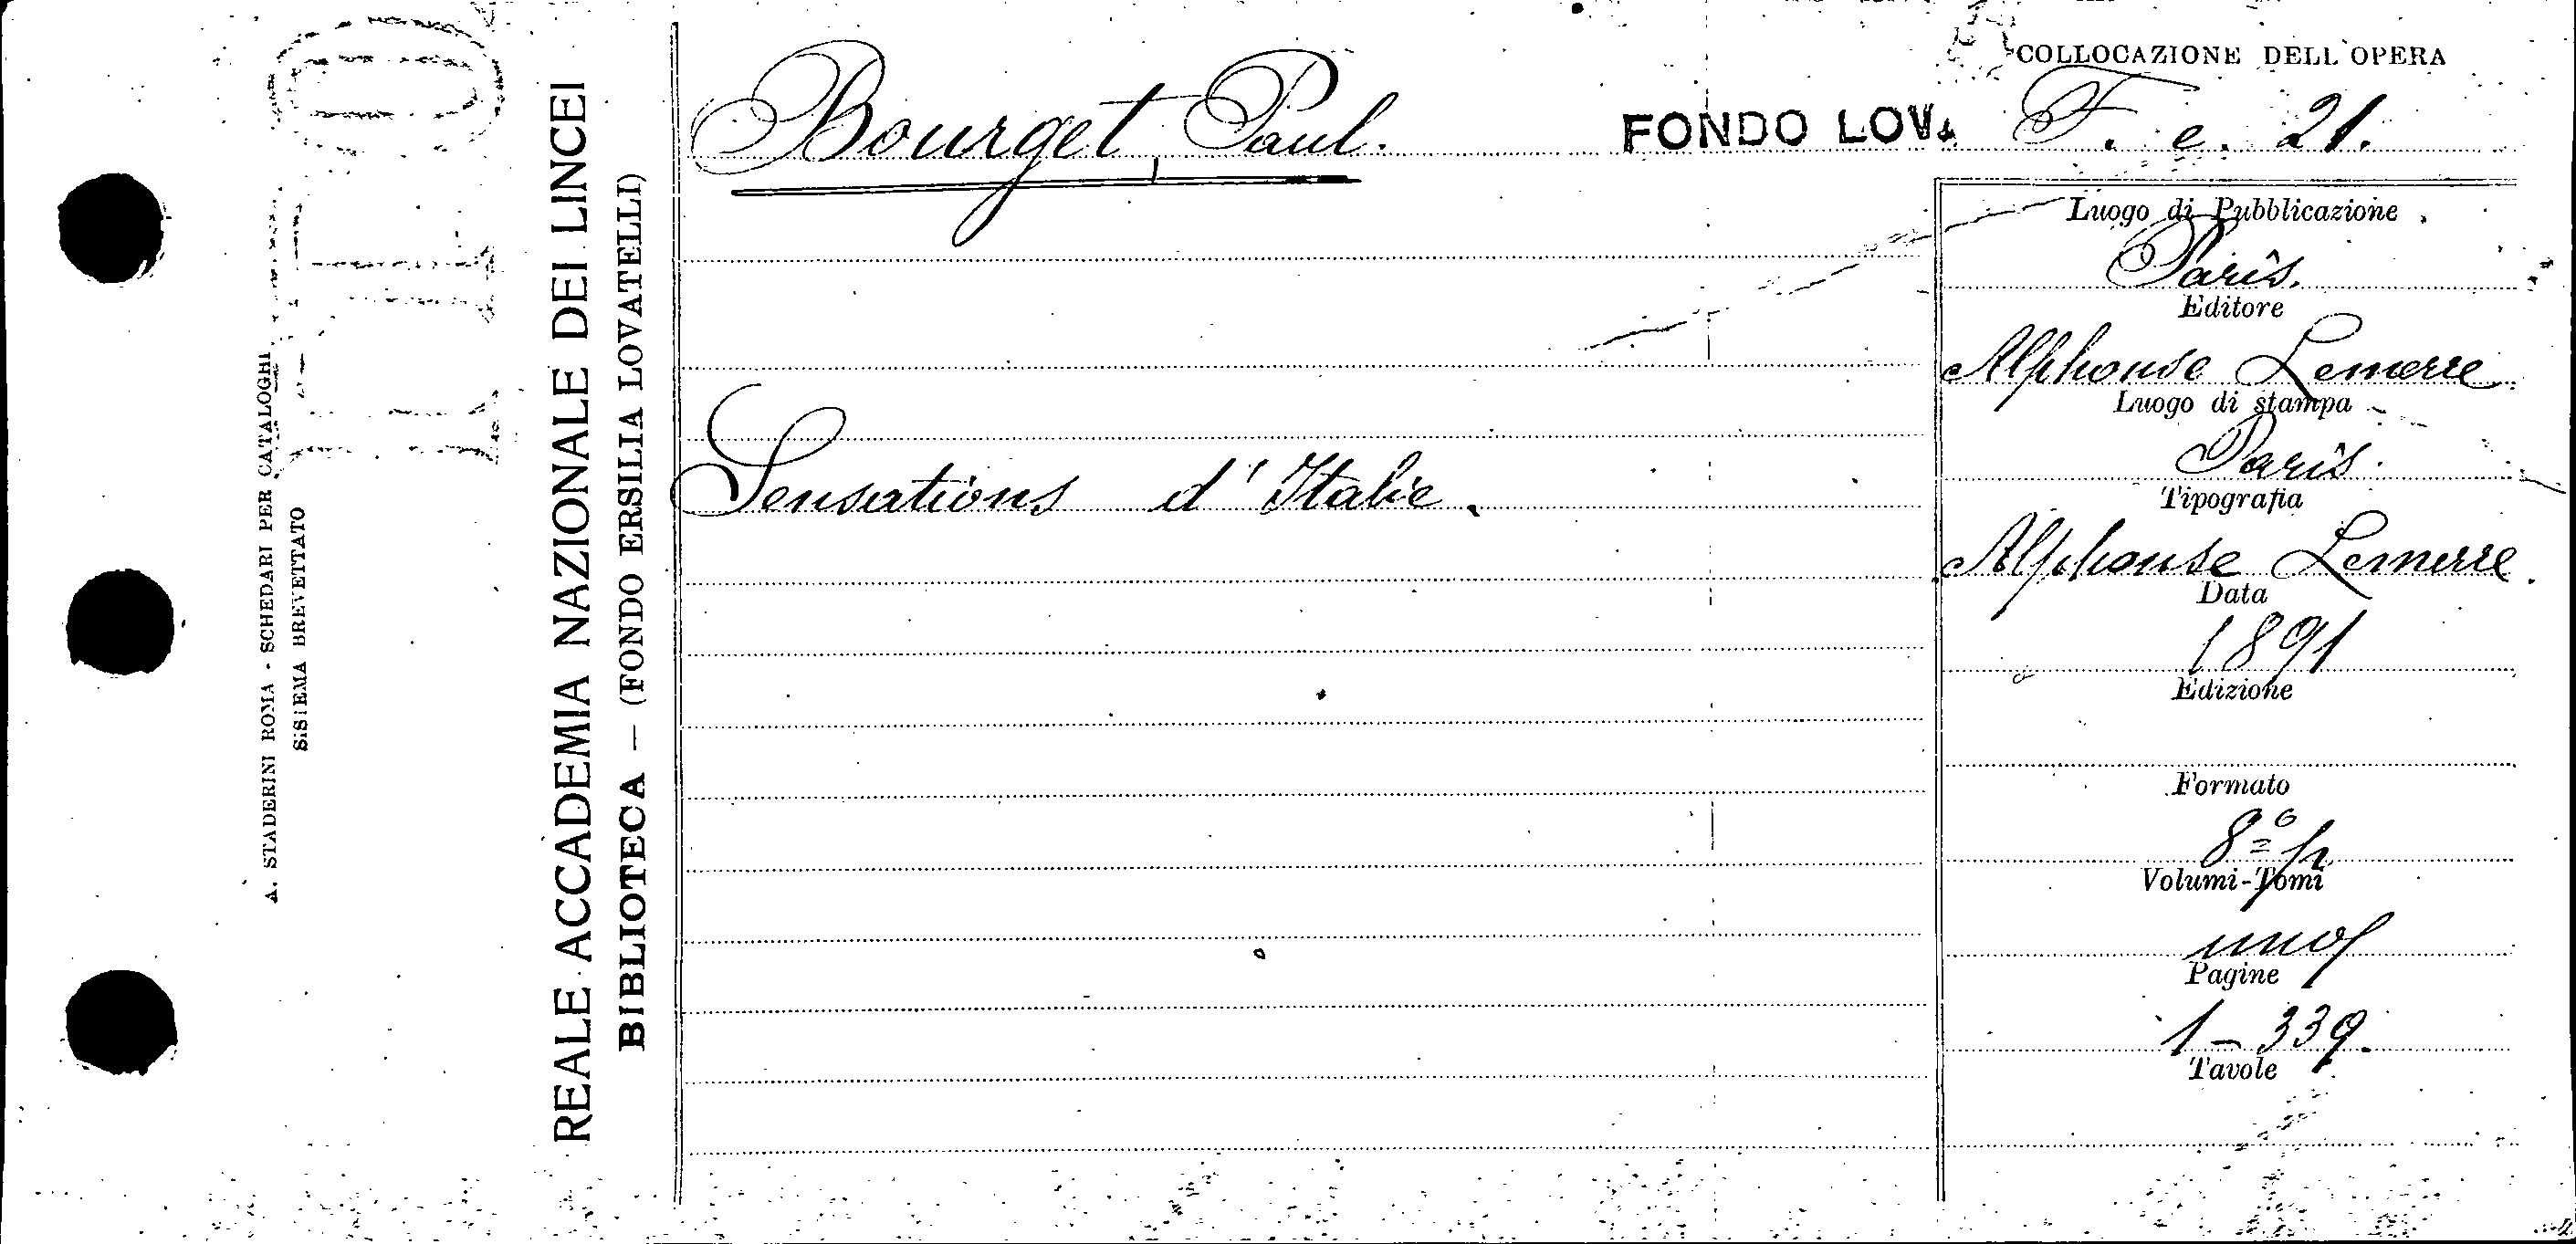 A. STADERINI ROMA - SCHEDARI PER CATALOGHI
SISTEMA BREVETTATO
REALE ACCADEMIA NAZIONALE DEI LINCEI
BIBLIOTECA — (FONDO ERSILIA LOVATELLI)
Bourget, Paul.
FONDO LOV.
COLLOCAZIONE DELL'OPERA
F. e. 21.
Sensations d'Italie.
Luogo di Pubblicazione
Paris.
Editore
Alphonse Lemerre
Luogo di stampa
Paris.
Tipografia
Alphonse Lemerre.
Data
1891
Edizione
Formato
8º p
Volumi-Tomi
uno
Pagine
1 – 339.
Tavole